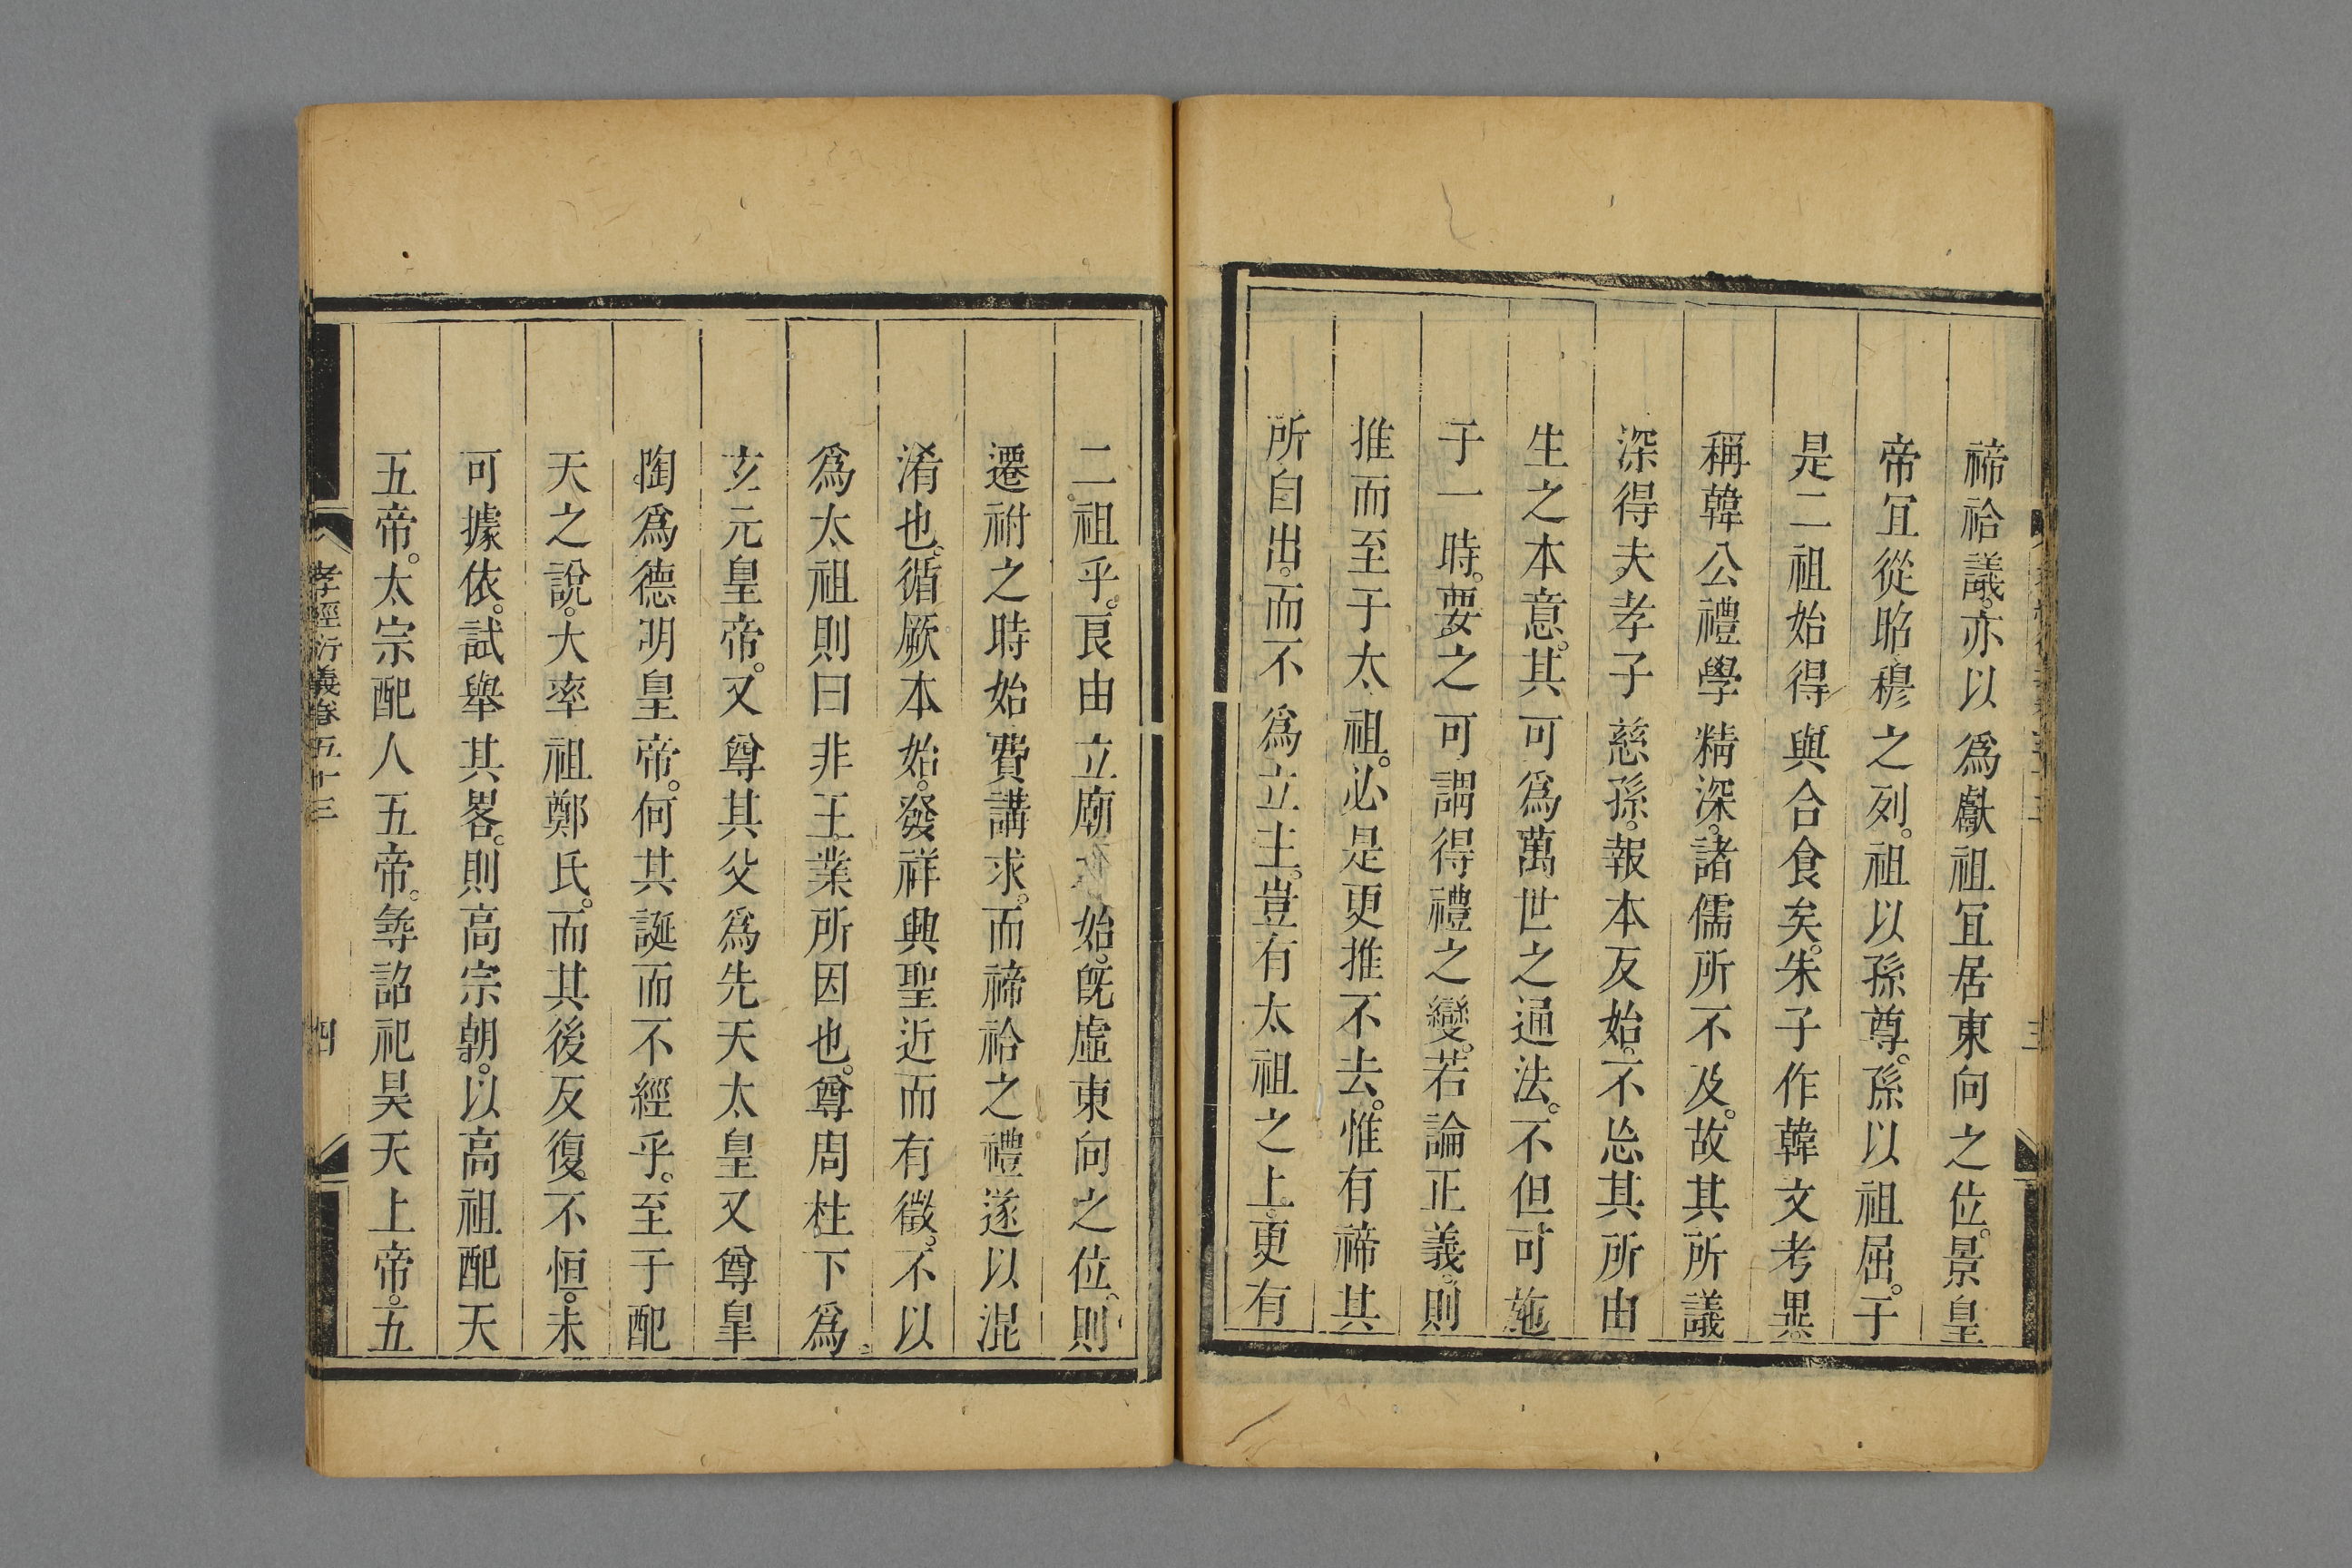 禘祫議。亦以爲獻祖宜居東向之位。景皇
帝宜從昭穆之列。祖以孫尊。孫以祖屈。于
是二祖始得與合食矣。朱子作韓文考異
稱韓公禮學精深。諸儒所不及。故其所議
深得夫孝子慈孫。報本反始。不忘其所由
生之本意。其可爲萬世之通法。不但可施
于一時。要之可謂得禮之變。若論正義。則
推而至于太祖。必是更推不去。惟有禘其
所自出。而不爲立主。豈有太祖之上。更有
二祖乎。良由立廟之始。旣虛東向之位。則
遷祔之時始費講求。而禘祫之禮遂以混
淆也。循厥本始。發祥興聖近而有徵。不以
爲太祖則曰非王業所因也。尊周柱下爲
玄元皇帝。又尊其父爲先天太皇又尊皐
陶爲德明皇帝。何其誕而不經乎。至于配
天之說。大率祖鄭氏。而其後反復不恒。未
可據依。試舉其畧。則高宗朝。以高祖配天
五帝。太宗配人五帝。尋詔祀昊天上帝。五
孝經衍義卷五十三
四